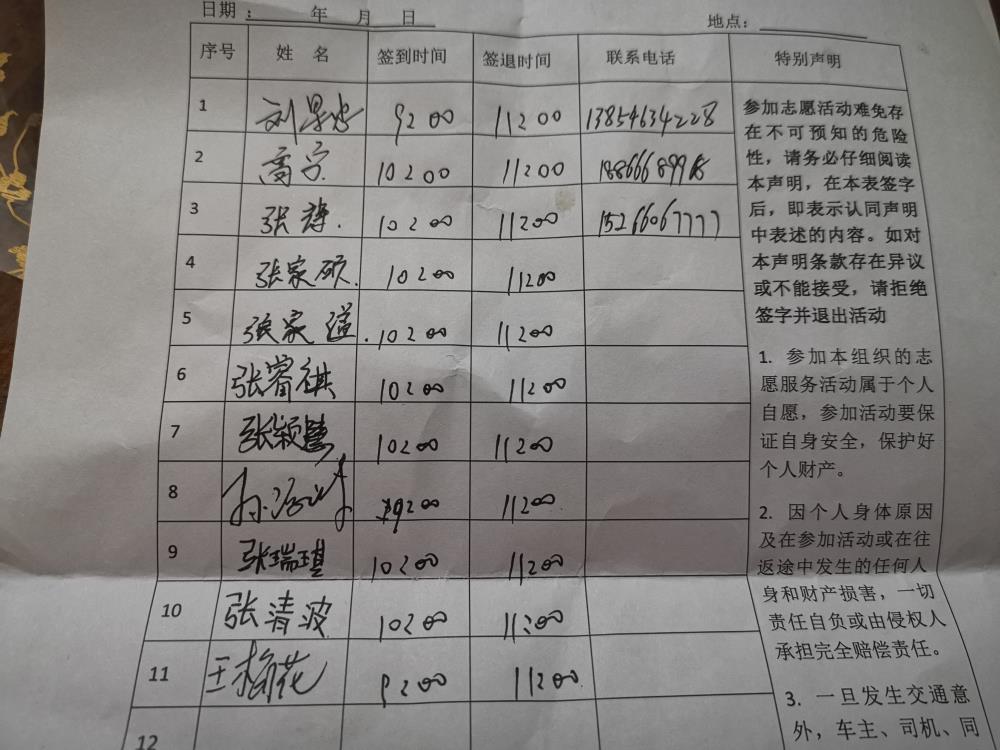 日期：　年　月　日
地点：
序号 姓 名 签到时间 签退时间 联系电话 特别声明
1 刘 9:00 11:00 13854634228
2 高 10:00 11:00
3 张 10:00 11:00 15266067777
4 张家硕 10:00 11:00
5 张家溢 10:00 11:00
6 张睿祺 10:00 11:00
7 张颖慧 10:00 11:00
8 孙 9:00 11:00
9 张瑞琪 10:00 11:00
10 张清波 10:00 11:00
11 王梅花 9:00 11:00
12
参加志愿活动难免存
在不可预知的危险
性，请务必仔细阅读
本声明，在本表签字
后，即表示认同声明
中表述的内容。如对
本声明条款存在异议
或不能接受，请拒绝
签字并退出活动
1. 参加本组织的志
愿服务活动属于个人
自愿，参加活动要保
证自身安全，保护好
个人财产。
2. 因个人身体原因
及在参加活动或在往
返途中发生的任何人
身和财产损害，一切
责任自负或由侵权人
承担完全赔偿责任。
3. 一旦发生交通意
外，车主、司机、同